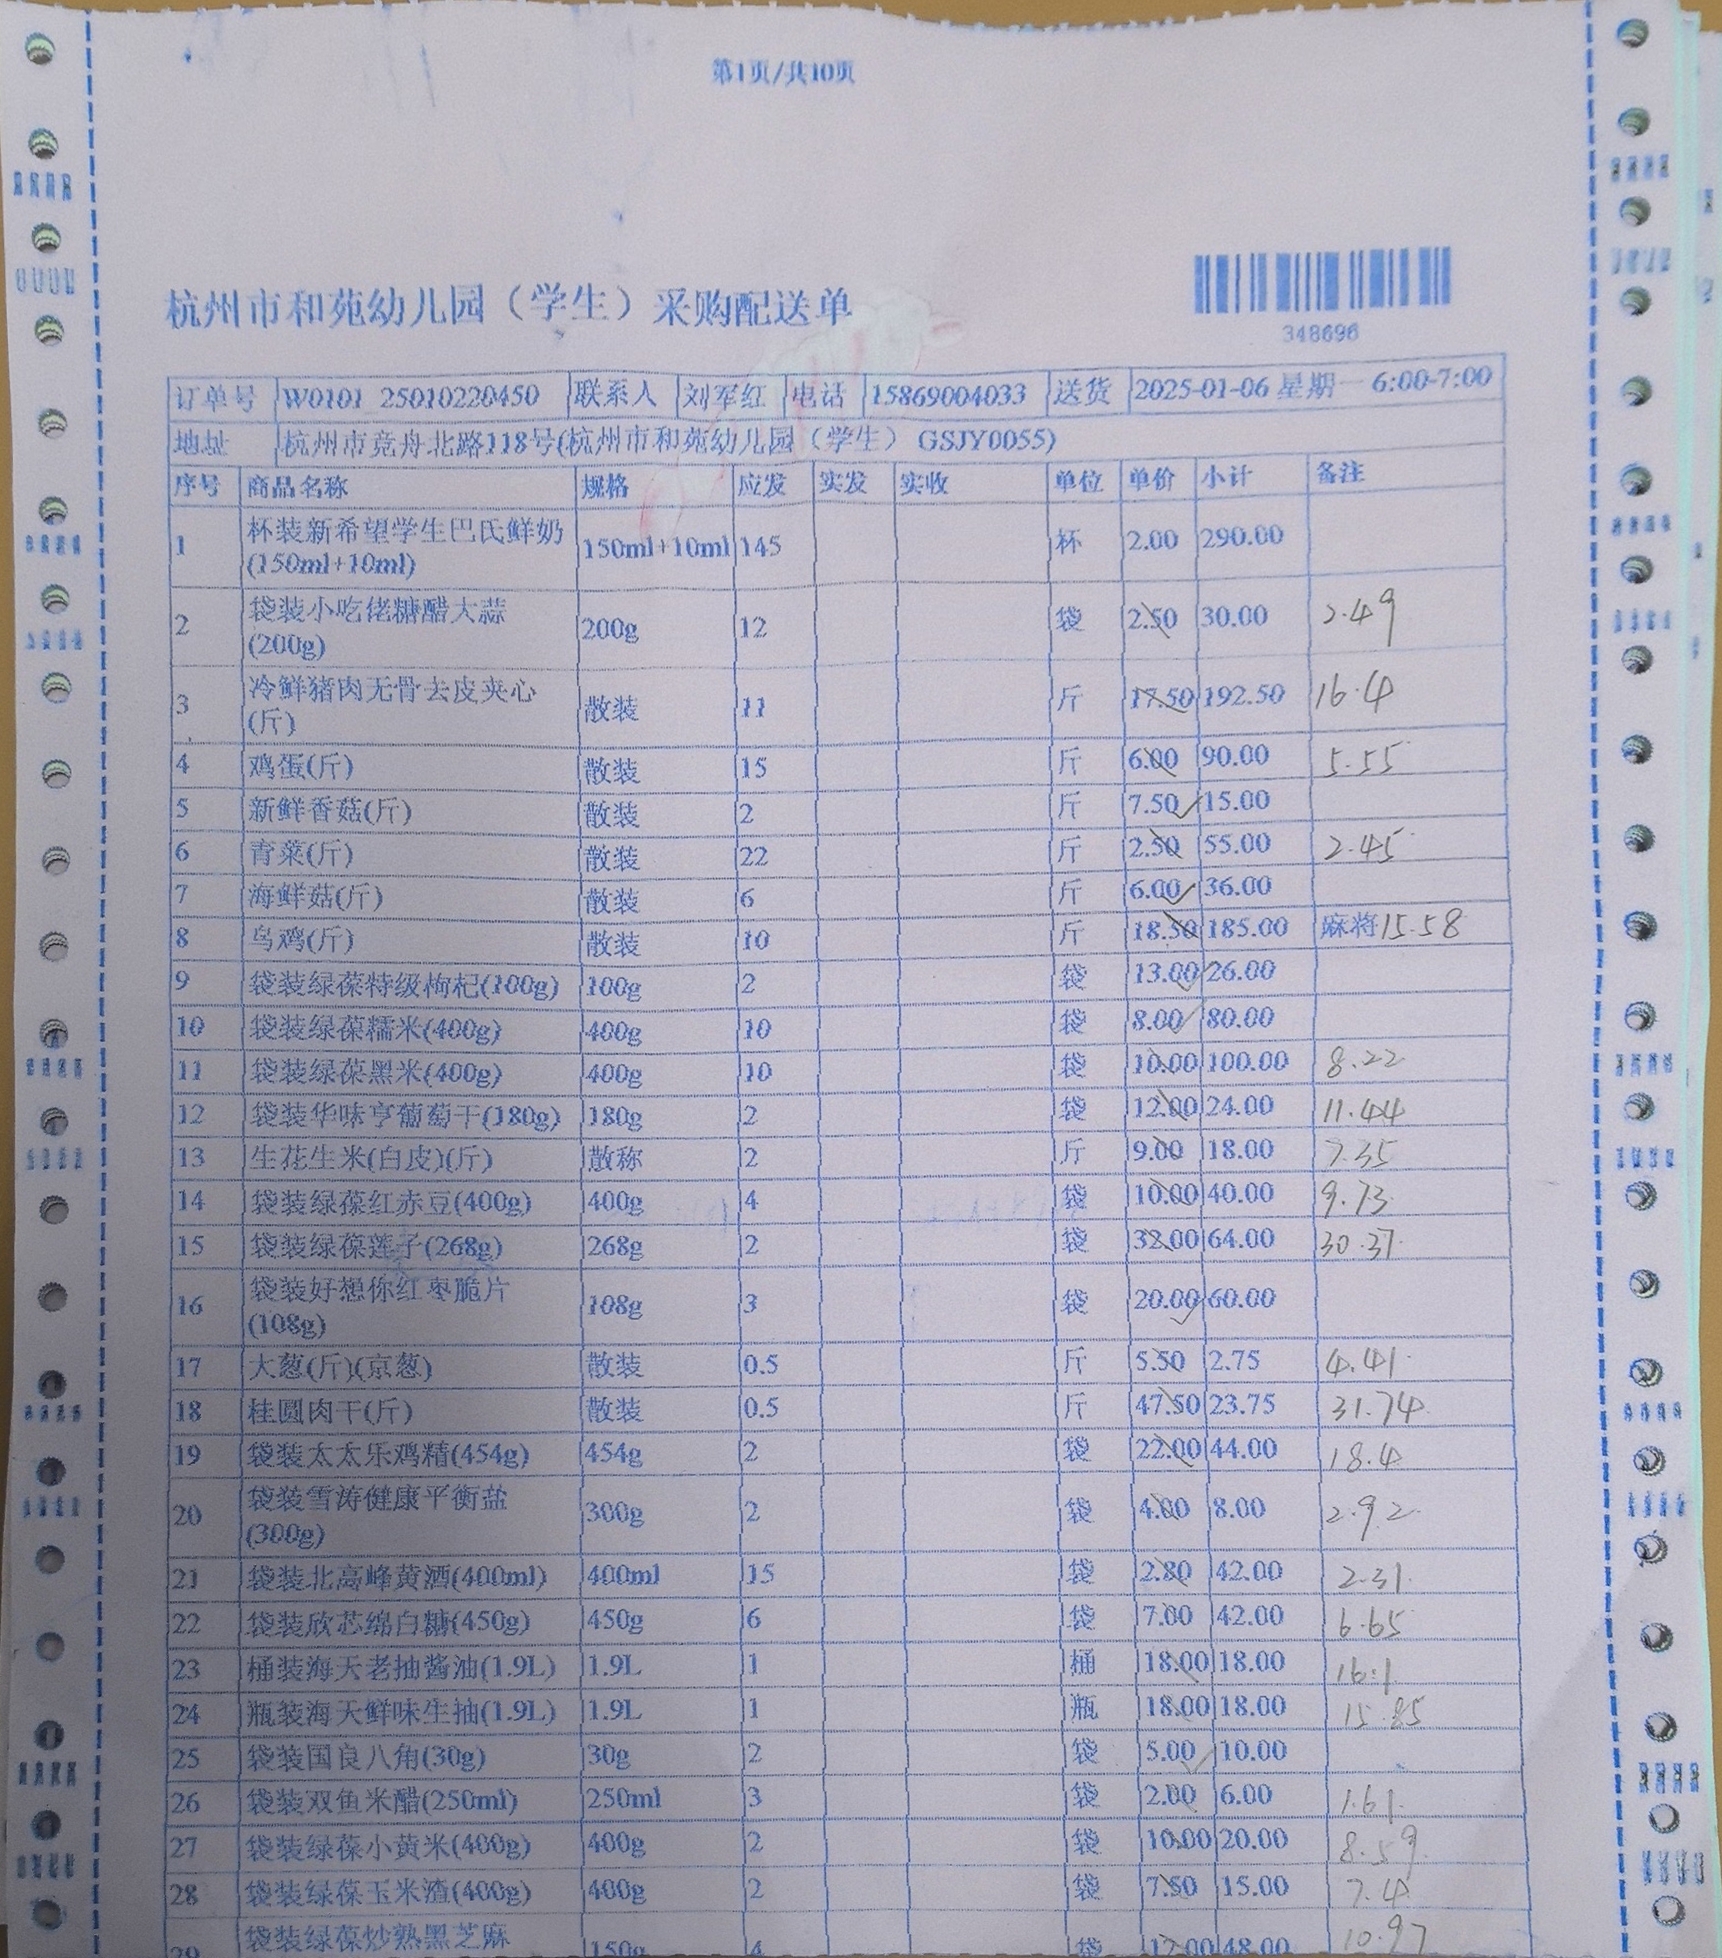 第1页/共10页
杭州市和苑幼儿园（学生）采购配送单
348696
订单号 W0101_25010220450 联系人 刘军红 电话 15869004033 送货 2025-01-06 星期一 6:00-7:00
地址 杭州市竞舟北路118号(杭州市和苑幼儿园（学生） GSJY0055)
序号 商品名称 规格 应发 实发 实收 单位 单价 小计 备注
1 杯装新希望学生巴氏鲜奶(150ml+10ml) 150ml+10ml 145 杯 2.00 290.00
2 袋装小吃佬糖醋大蒜(200g) 200g 12 袋 2.50 30.00 2.49
3 冷鲜猪肉无骨去皮夹心(斤) 散装 11 斤 17.50 192.50 16.4
4 鸡蛋(斤) 散装 15 斤 6.00 90.00 5.55
5 新鲜香菇(斤) 散装 2 斤 7.50 15.00
6 青菜(斤) 散装 22 斤 2.50 55.00 2.45
7 海鲜菇(斤) 散装 6 斤 6.00 36.00
8 乌鸡(斤) 散装 10 斤 18.50 185.00 麻将15.58
9 袋装绿葆特级枸杞(100g) 100g 2 袋 13.00 26.00
10 袋装绿葆糯米(400g) 400g 10 袋 8.00 80.00
11 袋装绿葆黑米(400g) 400g 10 袋 10.00 100.00 8.22
12 袋装华味亨葡萄干(180g) 180g 2 袋 12.00 24.00 11.44
13 生花生米(白皮)(斤) 散称 2 斤 9.00 18.00 7.35
14 袋装绿葆红赤豆(400g) 400g 4 袋 10.00 40.00 9.73
15 袋装绿葆莲子(268g) 268g 2 袋 32.00 64.00 30.37
16 袋装好想你红枣脆片(108g) 108g 3 袋 20.00 60.00
17 大葱(斤)(京葱) 散装 0.5 斤 5.50 2.75 4.41
18 桂圆肉干(斤) 散装 0.5 斤 47.50 23.75 31.74
19 袋装太太乐鸡精(454g) 454g 2 袋 22.00 44.00 18.4
20 袋装雪涛健康平衡盐(300g) 300g 2 袋 4.00 8.00 2.92
21 袋装北高峰黄酒(400ml) 400ml 15 袋 2.80 42.00 2.31
22 袋装欣芯绵白糖(450g) 450g 6 袋 7.00 42.00 6.65
23 桶装海天老抽酱油(1.9L) 1.9L 1 桶 18.00 18.00 16.1
24 瓶装海天鲜味生抽(1.9L) 1.9L 1 瓶 18.00 18.00 15.85
25 袋装国良八角(30g) 30g 2 袋 5.00 10.00
26 袋装双鱼米醋(250ml) 250ml 3 袋 2.00 6.00 1.61
27 袋装绿葆小黄米(400g) 400g 2 袋 10.00 20.00 8.59
28 袋装绿葆玉米渣(400g) 400g 2 袋 7.50 15.00 7.4
29 袋装绿葆炒熟黑芝麻 150g 4 袋 12.00 48.00 10.97